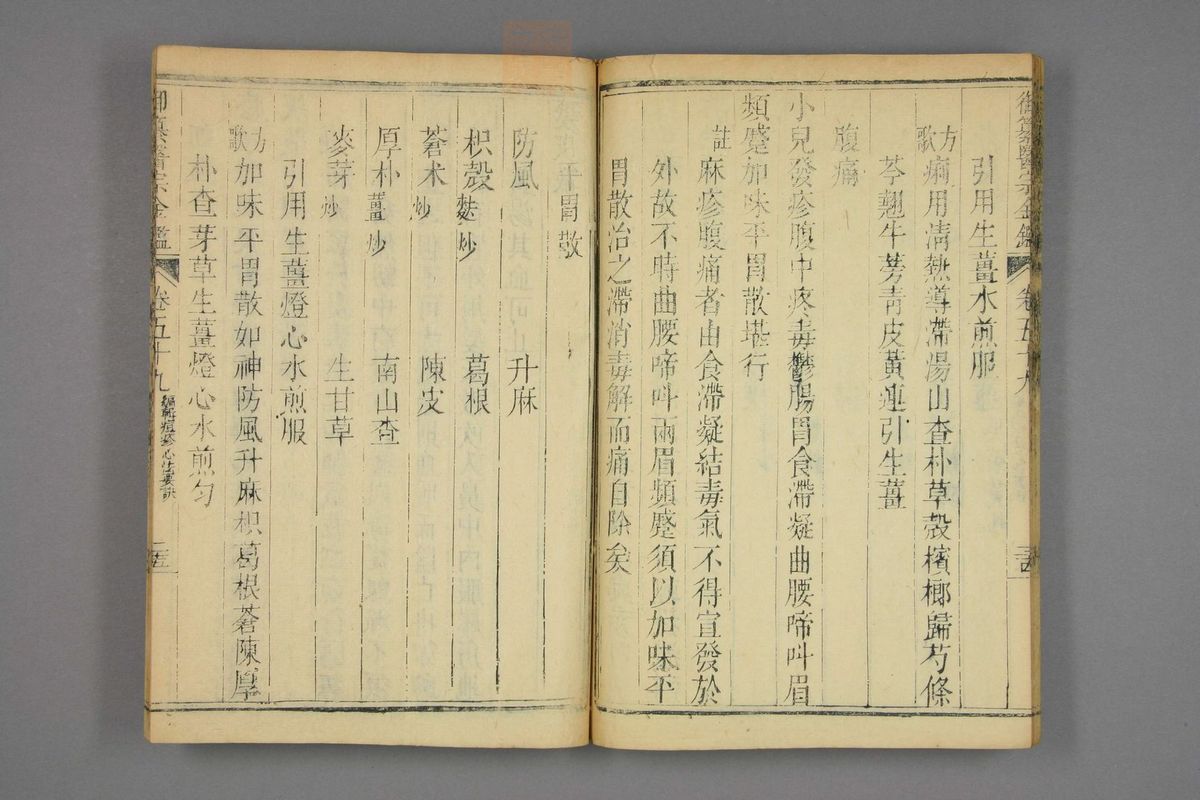 御纂醫宗金鑑 卷五十九
引用生薑水煎服
方歌 痢用淸熱導滯湯山查朴草殼檳榔歸芍條
芩翹牛蒡靑皮黃連引生薑
腹痛
小兒發疹腹中疼毒鬱腸胃食滯凝曲腰啼叫眉
頻蹙加味平胃散堪行
註 麻疹腹痛者由食滯凝結毒氣不得宣發於
外故不時曲腰啼叫兩眉頻蹙須以加味平
胃散治之滯消毒解而痛自除矣
加味平胃散
防風 升麻
枳殼麩炒 葛根
蒼术炒 陳皮
厚朴薑炒 南山查
麥芽炒 生甘草
引用生薑燈心水煎服
方歌 加味平胃散如神防風升麻枳葛根蒼陳厚
朴查芽草生薑燈心水煎勻
御纂醫宗金鑑 卷五十九 編輯痘疹心法要訣